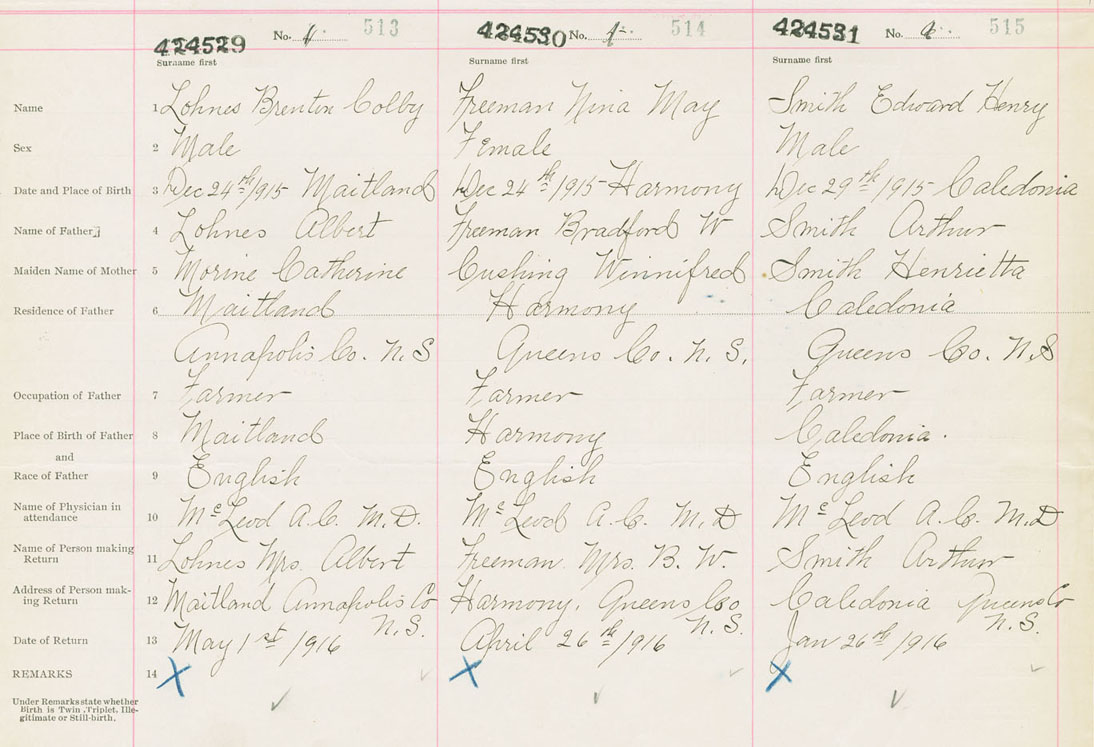 424529 No. 4. 513 424530 No. 4. 514 424531 No. 4. 515
Surname first Surname first Surname first
Name 1 Lohnes Brenton Colby Freeman Nina May Smith Edward Henry
Sex 2 Male Female Male
Date and Place of Birth 3 Dec 24th/1915 Maitland Dec 24th/1915 Harmony Dec 29th/1915 Caledonia
Name of Father 4 Lohnes Albert Freeman Bradford W Smith Arthur
Maiden Name of Mother 5 Morine Catherine Cushing Winnifred Smith Henrietta
Residence of Father 6 Maitland Harmony Caledonia
Annapolis Co. N.S Queens Co. N.S. Queens Co. N.S
Occupation of Father 7 Farmer Farmer Farmer
Place of Birth of Father 8 Maitland Harmony Caledonia.
and
Race of Father 9 English English English
Name of Physician in
attendance 10 McLeod A.C. M.D. McLeod A.C. M.D McLeod A.C. M.D
Name of Person making
Return 11 Lohnes Mrs. Albert Freeman Mrs. B. W. Smith Arthur
Address of Person mak-
ing Return 12 Maitland Annapolis Co Harmony, Queens Co Caledonia Queens Co
N.S. N.S. N.S.
Date of Return 13 May 1st/1916 April 26th/1916 Jan 26th/1916
REMARKS 14 X X X
Under Remarks state whether
Birth is Twin, Triplet, Ille-
gitimate or Still-birth.